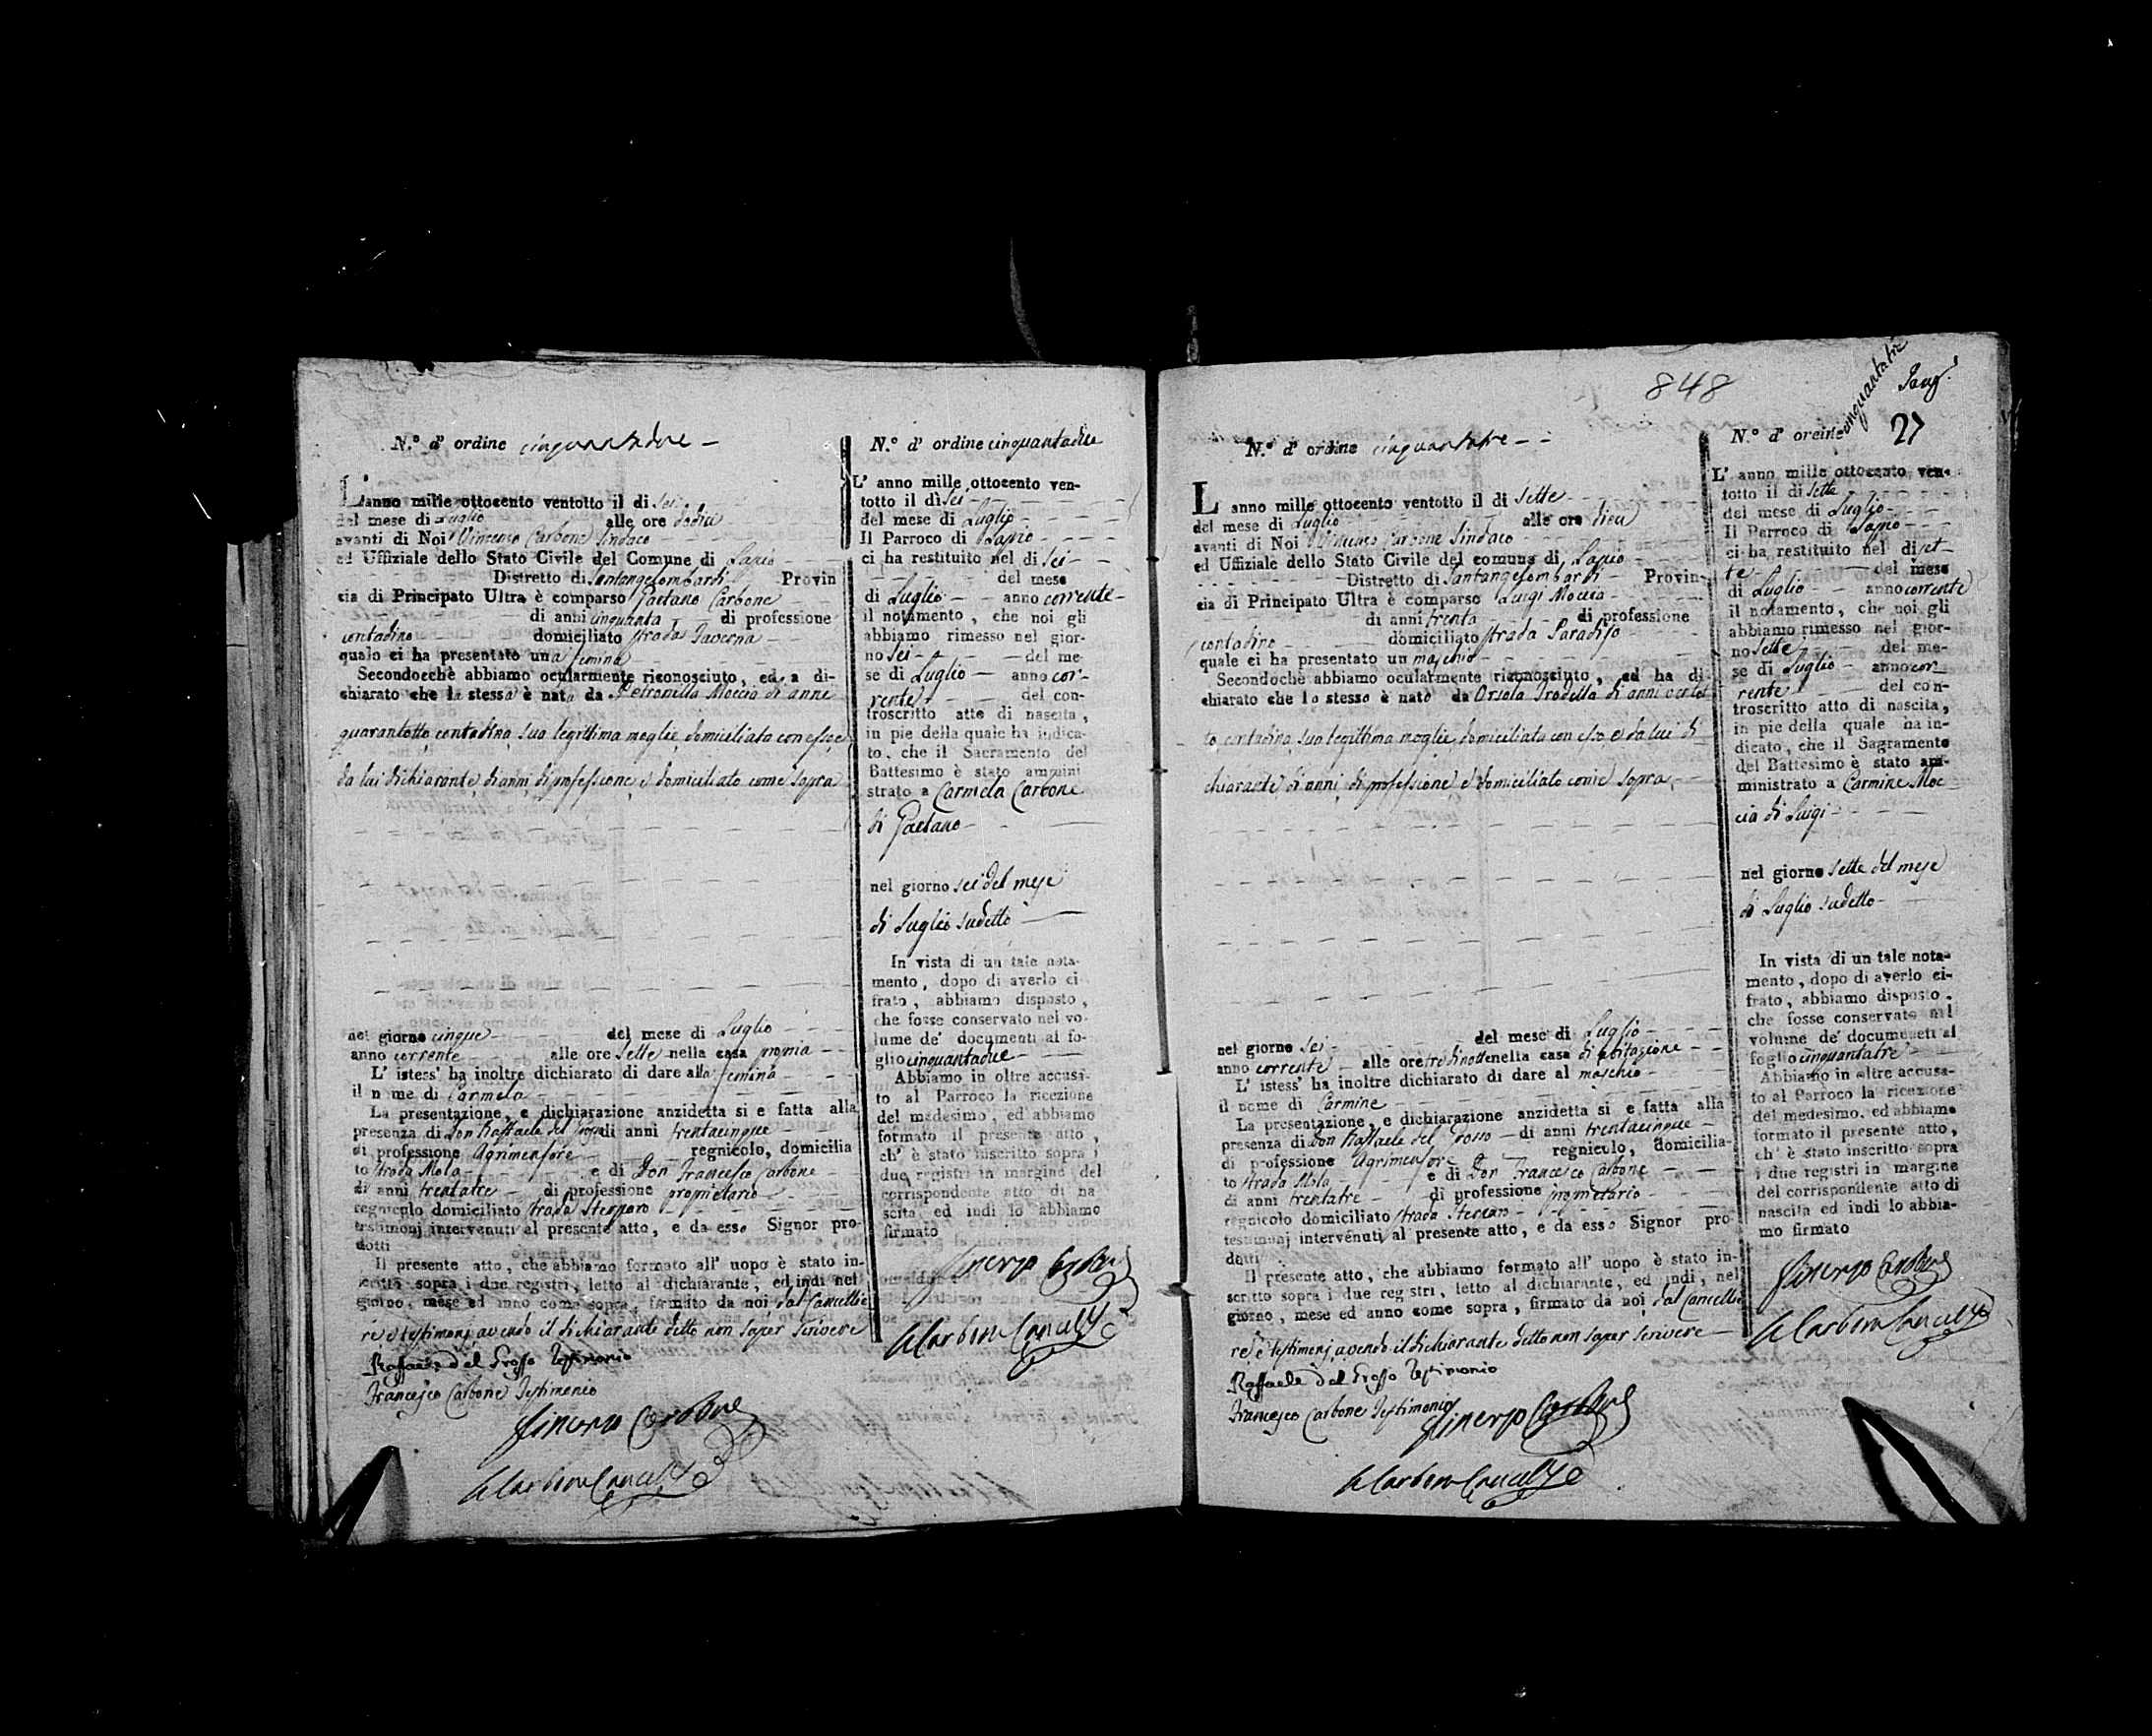 N.º d' ordine cinquantadue
L'anno mille ottocento ventotto il di sei
del mese di Luglio alle ore dodici
avanti di Noi Vincenzo Carbone Sindaco
ed Uffiziale dello Stato Civile del Comune di Lapio
Distretto di Santangelombardi Provin
cia di Principato Ultra è comparso Gaetano Carbone
di anni cinquanta di professione
contadino domiciliato strada Taverna
quale ci ha presentato una femina
Secondochè abbiamo ocularmente riconosciuto, ed a di-
chiarato che la stessa è nata da Petronilla Moccia di anni
quarantotto contadina sua legittima moglie domiciliata con esso e
da lui dichiarante di anni di professione e domiciliato come sopra
nel giorno cinque del mese di Luglio
anno corrente alle ore sette nella casa propria
L' istess' ha inoltre dichiarato di dare alla femina
il nome di Carmela
La presentazione, e dichiarazione anzidetta si e fatta alla
presenza di Don Raffaele del Grosso di anni trentacinque
di professione Agrimensore regnicolo, domicilia
to strada Mola e di Don Francesco Carbone
di anni trentatre di professione proprietario
regnicolo domiciliato strada
testimonj intervenuti al presente atto, e da esso Signor pro-
dotti
Il presente atto, che abbiamo formato all' uopo è stato in-
scritto sopra i due registri, letto al dichiarante, ed indi nel
giorno, mese ed anno come sopra, firmato da noi dal Cancellie
re e testimonj avendo il dichiarante detto non saper scrivere
Raffaele del Grosso Testimonio
Francesco Carbone Testimonio
Vincenzo Carbone
Carbone Cancelliere
N.º d' ordine cinquantadue
L' anno mille ottocento ven-
totto il dì sei
del mese di Luglio
Il Parroco di Lapio
ci ha restituito nel di sei
del mese
di Luglio anno corrente
il notamento, che noi gli
abbiamo rimesso nel gior-
no sei del me-
se di Luglio anno cor-
rente del con-
troscritto atto di nascita,
in pie della quale ha indica-
to, che il Sacramento del
Battesimo è stato ammini
strato a Carmela Carbone
di Gaetano
nel giorno sei del mese
di Luglio sudetto
In vista di un tale nota-
mento, dopo di averlo ci
frato, abbiamo disposto,
che fosse conservato nel vo-
lume de' documenti al fo-
glio cinquantadue
Abbiamo in oltre accusa-
to al Parroco la ricezione
del medesimo, ed abbiamo
formato il presente atto,
ch' è stato inscritto sopra i
due registri in margine del
corrispondente atto di na
scita ed indi lo abbiamo
firmato
Vincenzo Carbone
Carbone Cancelliere
848
27
N.º d' ordine cinquantatre
L' anno mille ottocento ventotto il di sette
del mese di Luglio alle ore dieci
avanti di Noi Vincenzo Carbone Sindaco
ed Uffiziale dello Stato Civile del comune di Lapio
Distretto di Santangelombardi Provin-
cia di Principato Ultra è comparso Luigi Moccia
di anni trenta di professione
contadino domiciliato strada Paradiso
quale ci ha presentato un maschio
Secondochè abbiamo ocularmente riconosciuto, ed ha di-
chiarato che lo stesso è nato da Orsola
contadina sua legittima moglie domiciliata con esso e da lui di
chiarante di anni di professione e domiciliato come sopra
nel giorno sei del mese di Luglio
anno corrente alle ore tre di notte nella casa di abitazione
L' istess' ha inoltre dichiarato di dare al maschio
il nome di Carmine
La presentazione, e dichiarazione anzidetta si e fatta alla
presenza di Don Raffaele del Grosso di anni trentacinque
di professione Agrimensore regnicolo, domicilia-
to strada Mola e di Don Francesco Carbone
di anni trentatre di professione proprietario
regnicolo domiciliato strada
testimonj intervenuti al presente atto, e da esso Signor pro-
dotti
Il presente atto, che abbiamo formato all' uopo è stato in-
scritto sopra i due registri, letto al dichiarante, ed indi, nel
giorno, mese ed anno come sopra, firmato da noi dal Cancellie
re e testimonj avendo il dichiarante detto non saper scrivere
Raffaele del Grosso Testimonio
Francesco Carbone Testimonio
Vincenzo Carbone
Carbone Cancelliere
N.º d' oreine cinquantatre
L' anno mille ottocento ven-
totto il di sette
del mese di Luglio
Il Parroco di Lapio
ci ha restituito nel di set-
te del mese
di Luglio anno corrente
il notamento, che noi gli
abbiamo rimesso nel gior-
no sette del me-
se di Luglio anno cor-
rente del con-
troscritto atto di nascita,
in pie della quale ha in-
dicato, che il Sagramento
del Battesimo è stato am-
ministrato a Carmine Moc
cia di Luigi
nel giorno sette del mese
di Luglio sudetto
In vista di un tale nota-
mento, dopo di averlo ci-
frato, abbiamo disposto,
che fosse conservato nel
volume de' documenti al
foglio cinquantatre
Abbiamo in oltre accusa-
to al Parroco la ricezione
del medesimo, ed abbiamo
formato il presente atto,
ch' è stato inscritto sopra
i due registri in margine
del corrispondente atto di
nascita ed indi lo abbia-
mo firmato
Vincenzo Carbone
Carbone Cancelliere